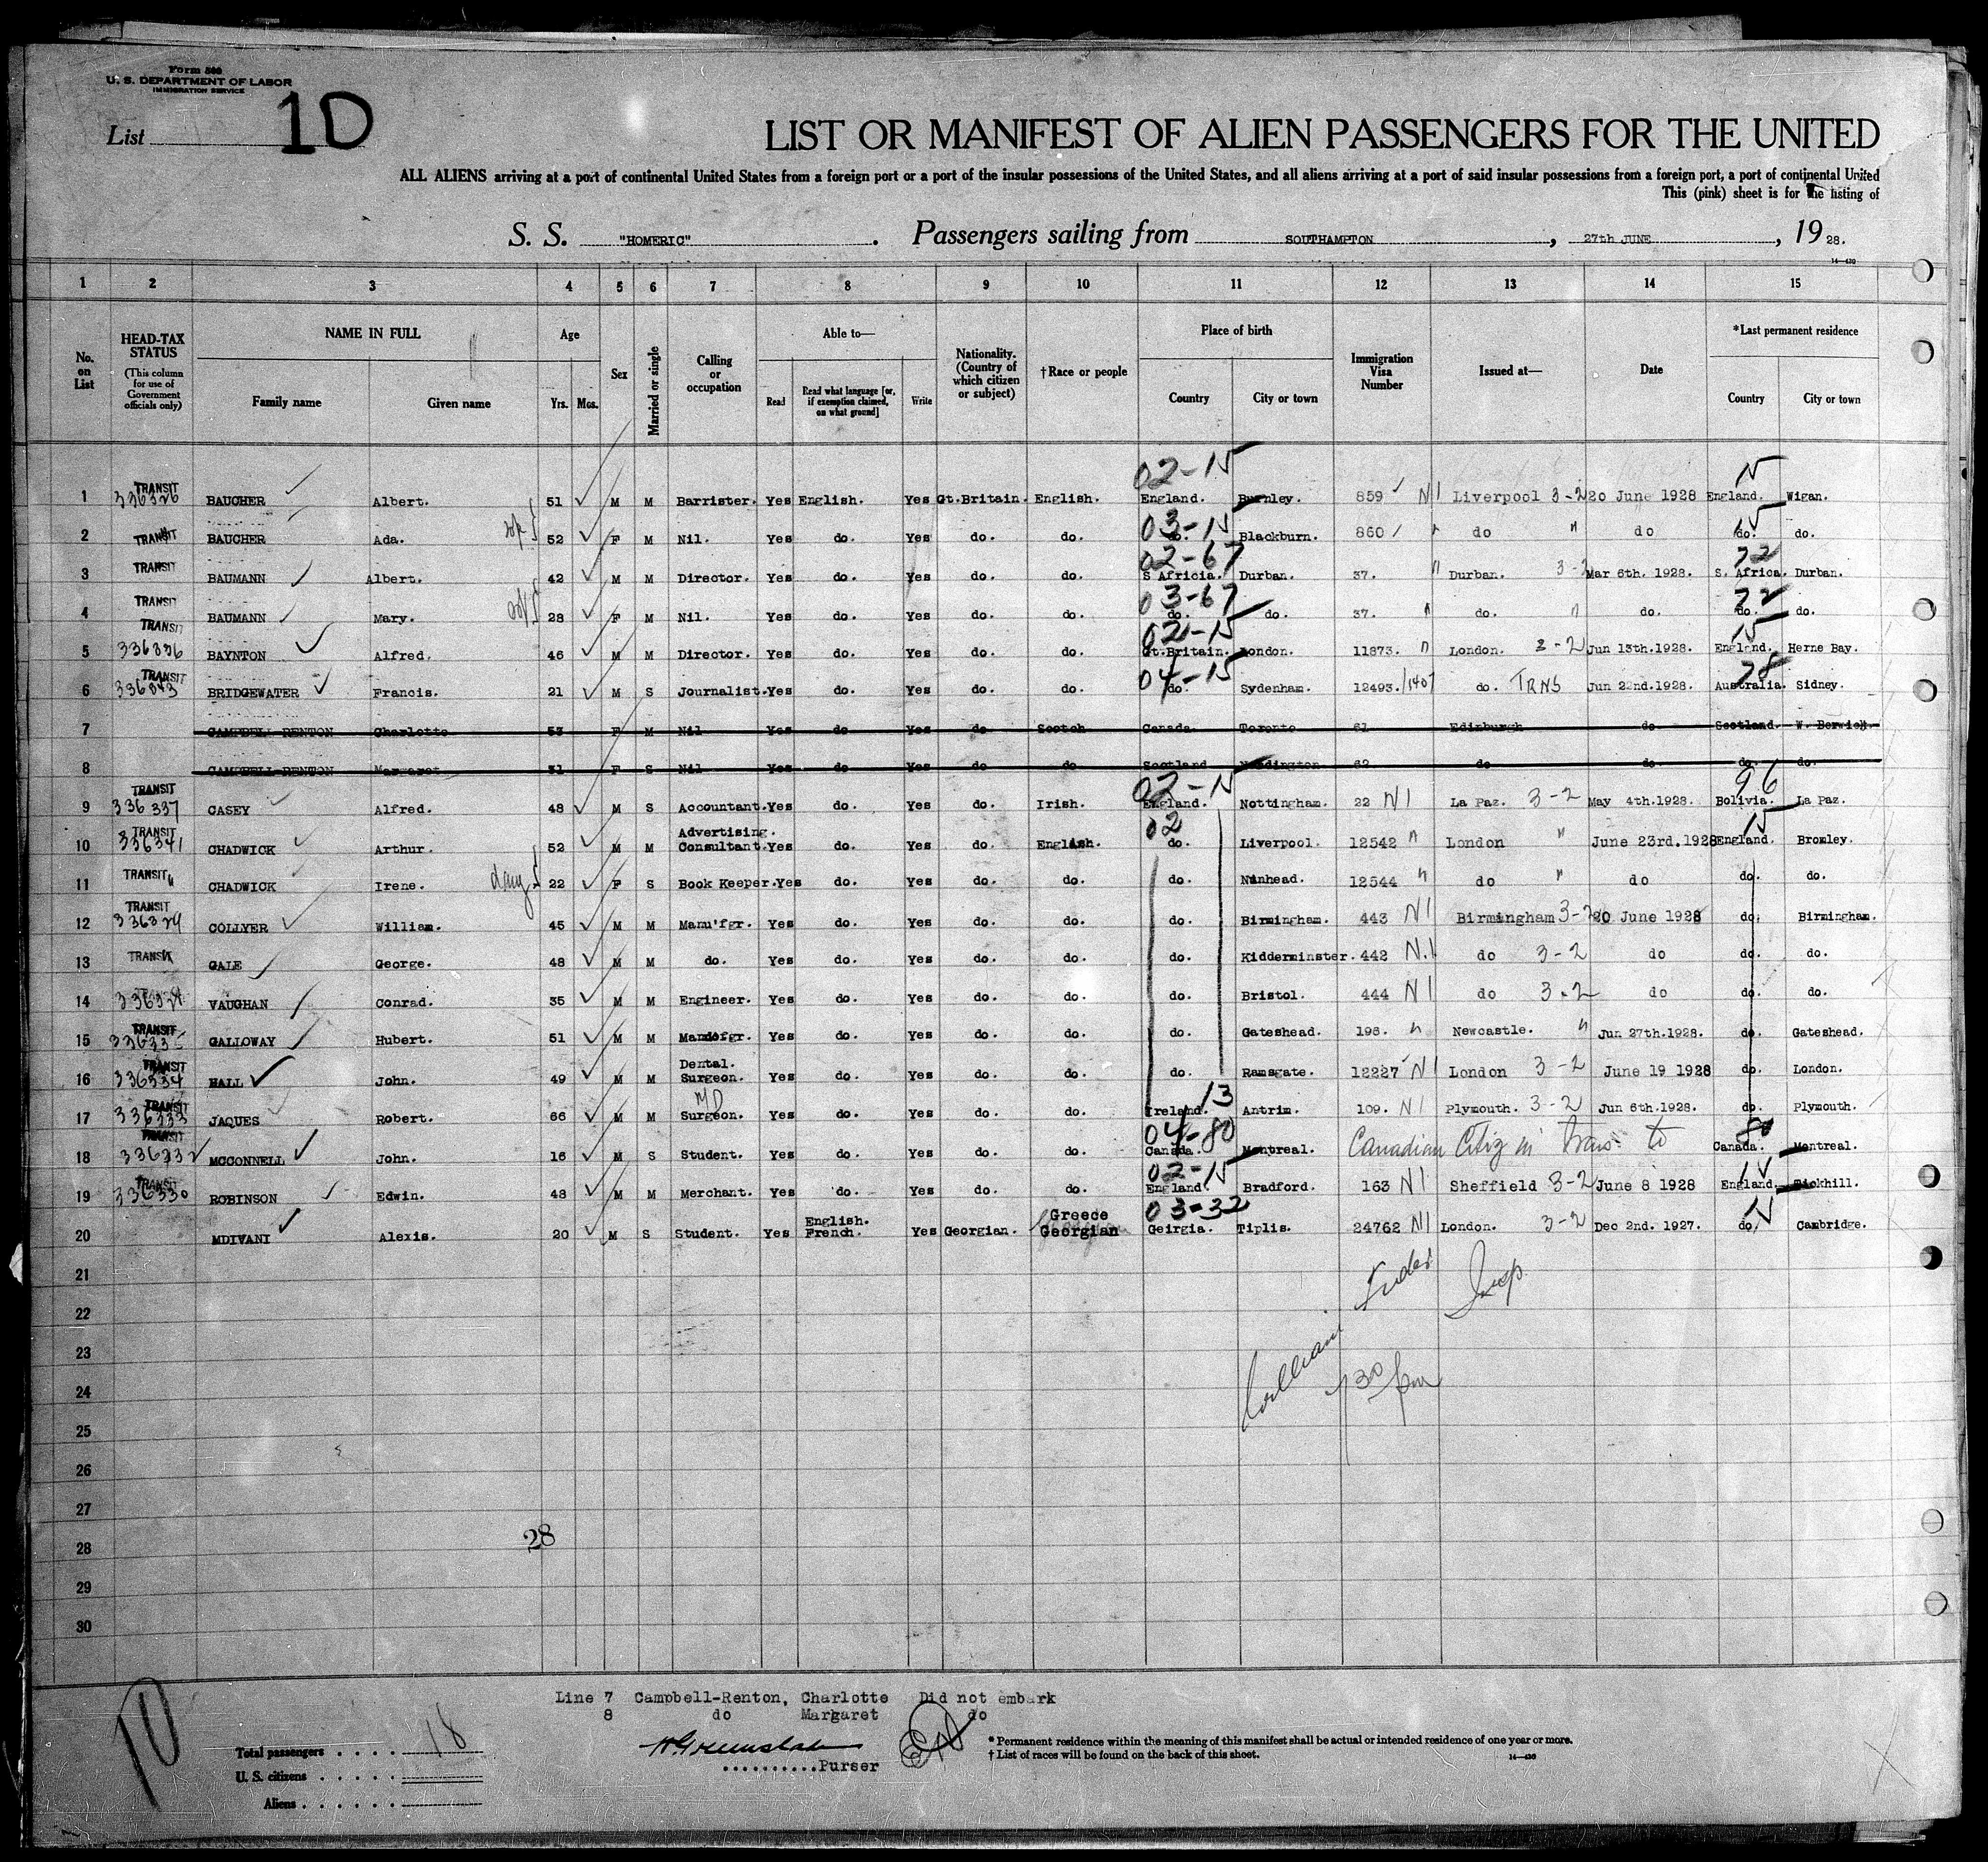 Form 500
U. S. DEPARTMENT OF LABOR
IMMIGRATION SERVICE
List 10
LIST OR MANIFEST OF ALIEN PASSENGERS FOR THE UNITED
ALL ALIENS arriving at a port of continental United States from a foreign port or a port of the insular possessions of the United States, and all aliens arriving at a port of said insular possessions from a foreign port, a port of continental United
This (pink) sheet is for the listing of
S. S. "HOMERIC". Passengers sailing from SOUTHAMPTON, 27th JUNE, 1928.
14—430
1 2 3 4 5 6 7 8 9 10 11 12 13 14 15
No. on List
HEAD-TAX STATUS (This column for use of Government officials only)
NAME IN FULL
Family name Given name
Age
Yrs. Mos.
Sex
Married or single
Calling or occupation
Able to—
Read Read what language [or, if exemption claimed, on what ground] Write
Nationality. (Country of which citizen or subject)
†Race or people
Place of birth
Country City or town
Immigration Visa Number
Issued at—
Date
*Last permanent residence
Country City or town
02-15 15
1 TRANSIT 336326 BAUCHER Albert. 51 M M Barrister. Yes English. Yes Gt.Britain. English. England. Burnley. 859 NI Liverpool 3-2 20 June 1928 England. Wigan.
03-15 15
2 TRANSIT BAUCHER Ada. 52 F M Nil. Yes do. Yes do. do. do. Blackburn. 860 " do " do do. do.
02-67 72
3 TRANSIT BAUMANN Albert. 42 M M Director. Yes do. Yes do. do. S Africia. Durban. 37. " Durban. 3-2 Mar 6th. 1928. S. Africa. Durban.
03-67 72
4 TRANSIT BAUMANN Mary. 28 F M Nil. Yes do. Yes do. do. do. do. 37. " do. " do. do. do.
02-15 15
5 TRANSIT 336336 BAYNTON Alfred. 46 M M Director. Yes do. Yes do. do. Gt.Britain. London. 11873. " London. 3-2 Jun 13th.1928. England. Herne Bay.
04-15 78
6 TRANSIT 336343 BRIDGEWATER Francis. 21 M S Journalist. Yes do. Yes do. do. do. Sydenham. 12493. do. TRNS Jun 22nd.1928. Australia. Sidney.
7 CAMPBELL RENTON Charlotte 53 F M Nil Yes do Yes do Scotch Canada Toronto 61 Edinburgh do Scotland. W. Berwick.
8 CAMPBELL-RENTON Margaret 31 F S Nil Yes do Yes do do Scotland 62 do do do. do.
02-15 96
9 TRANSIT 336337 CASEY Alfred. 48 M S Accountant. Yes do. Yes do. Irish. England. Nottingham. 22 NI La Paz. 3-2 May 4th.1928. Bolivia. La Paz.
02 15
10 TRANSIT 336341 CHADWICK Arthur. 52 M M Advertising. Consultant. Yes do. Yes do. English. do. Liverpool. 12542 " London " June 23rd.1928 England. Bromley.
11 TRANSIT " CHADWICK Irene. daug 22 F S Book Keeper. Yes do. Yes do. do. do. Nunhead. 12544 " do " do do. do.
12 TRANSIT 336329 COLLYER William. 45 M M Manu'fgr. Yes do. Yes do. do. do. Birmingham. 443 NI Birmingham 3-2 20 June 1928 do. Birmingham.
13 TRANSIT GALE George. 48 M M do. Yes do. Yes do. do. do. Kidderminster. 442 N.I do 3-2 do do. do.
14 VAUGHAN Conrad. 35 M M Engineer. Yes do. Yes do. do. do. Bristol. 444 NI do 3-2 do do. do.
15 TRANSIT GALLOWAY Hubert. 51 M M Yes do. Yes do. do. do. Gateshead. 198. " Newcastle. " Jun 27th.1928. do. Gateshead.
16 TRANSIT 336334 HALL John. 49 M M Dental. Surgeon. Yes do. Yes do. do. do. Ramsgate. 12227 NI London 3-2 June 19 1928 do. London.
MD 13
17 TRANSIT 336333 JAQUES Robert. 66 M M Surgeon. Yes do. Yes do. do. Ireland. Antrim. 109. NI Plymouth. 3-2 Jun 6th.1928. do. Plymouth.
04-80 80
18 TRANSIT 336332 MCCONNELL John. 16 M S Student. Yes do. Yes do. do. Canada. Montreal. Canadian Citiz in Trans. to Canada. Montreal.
02-15 15
19 TRANSIT 336330 ROBINSON Edwin. 48 M M Merchant. Yes do. Yes do. do. England. Bradford. 163 NI Sheffield 3-2 June 8 1928 England. Tickhill.
03-32 15
20 MDIVANI Alexis. 20 M S Student. Yes English. French. Yes Georgian. Greece Georgian Geirgia. Tiplis. 24762 NI London. 3-2 Dec 2nd. 1927. do. Cambridge.
21
22 Insp
23
24 William 130 pm
25
26
27
28 28
29
30
Line 7 Campbell-Renton, Charlotte Did not embark
8 do Margaret do
10
Total passengers . . . . 18
U. S. citizens . . . . .
Aliens . . . . . .
..........Purser
* Permanent residence within the meaning of this manifest shall be actual or intended residence of one year or more.
† List of races will be found on the back of this sheet.
14—430